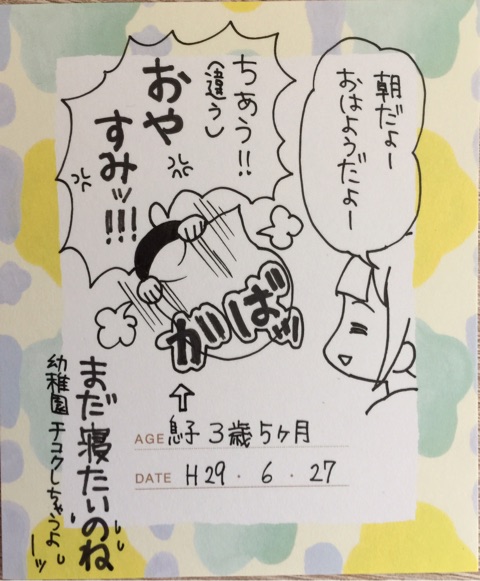 朝だよー
おはようだよー
ちあう!!
(違う)
おや
すみッ!!!
がばッ
AGE 息子 3歳5ヶ月
DATE H29・6・27
まだ寝たいのね
幼稚園チコクしちゃうよぉーッ